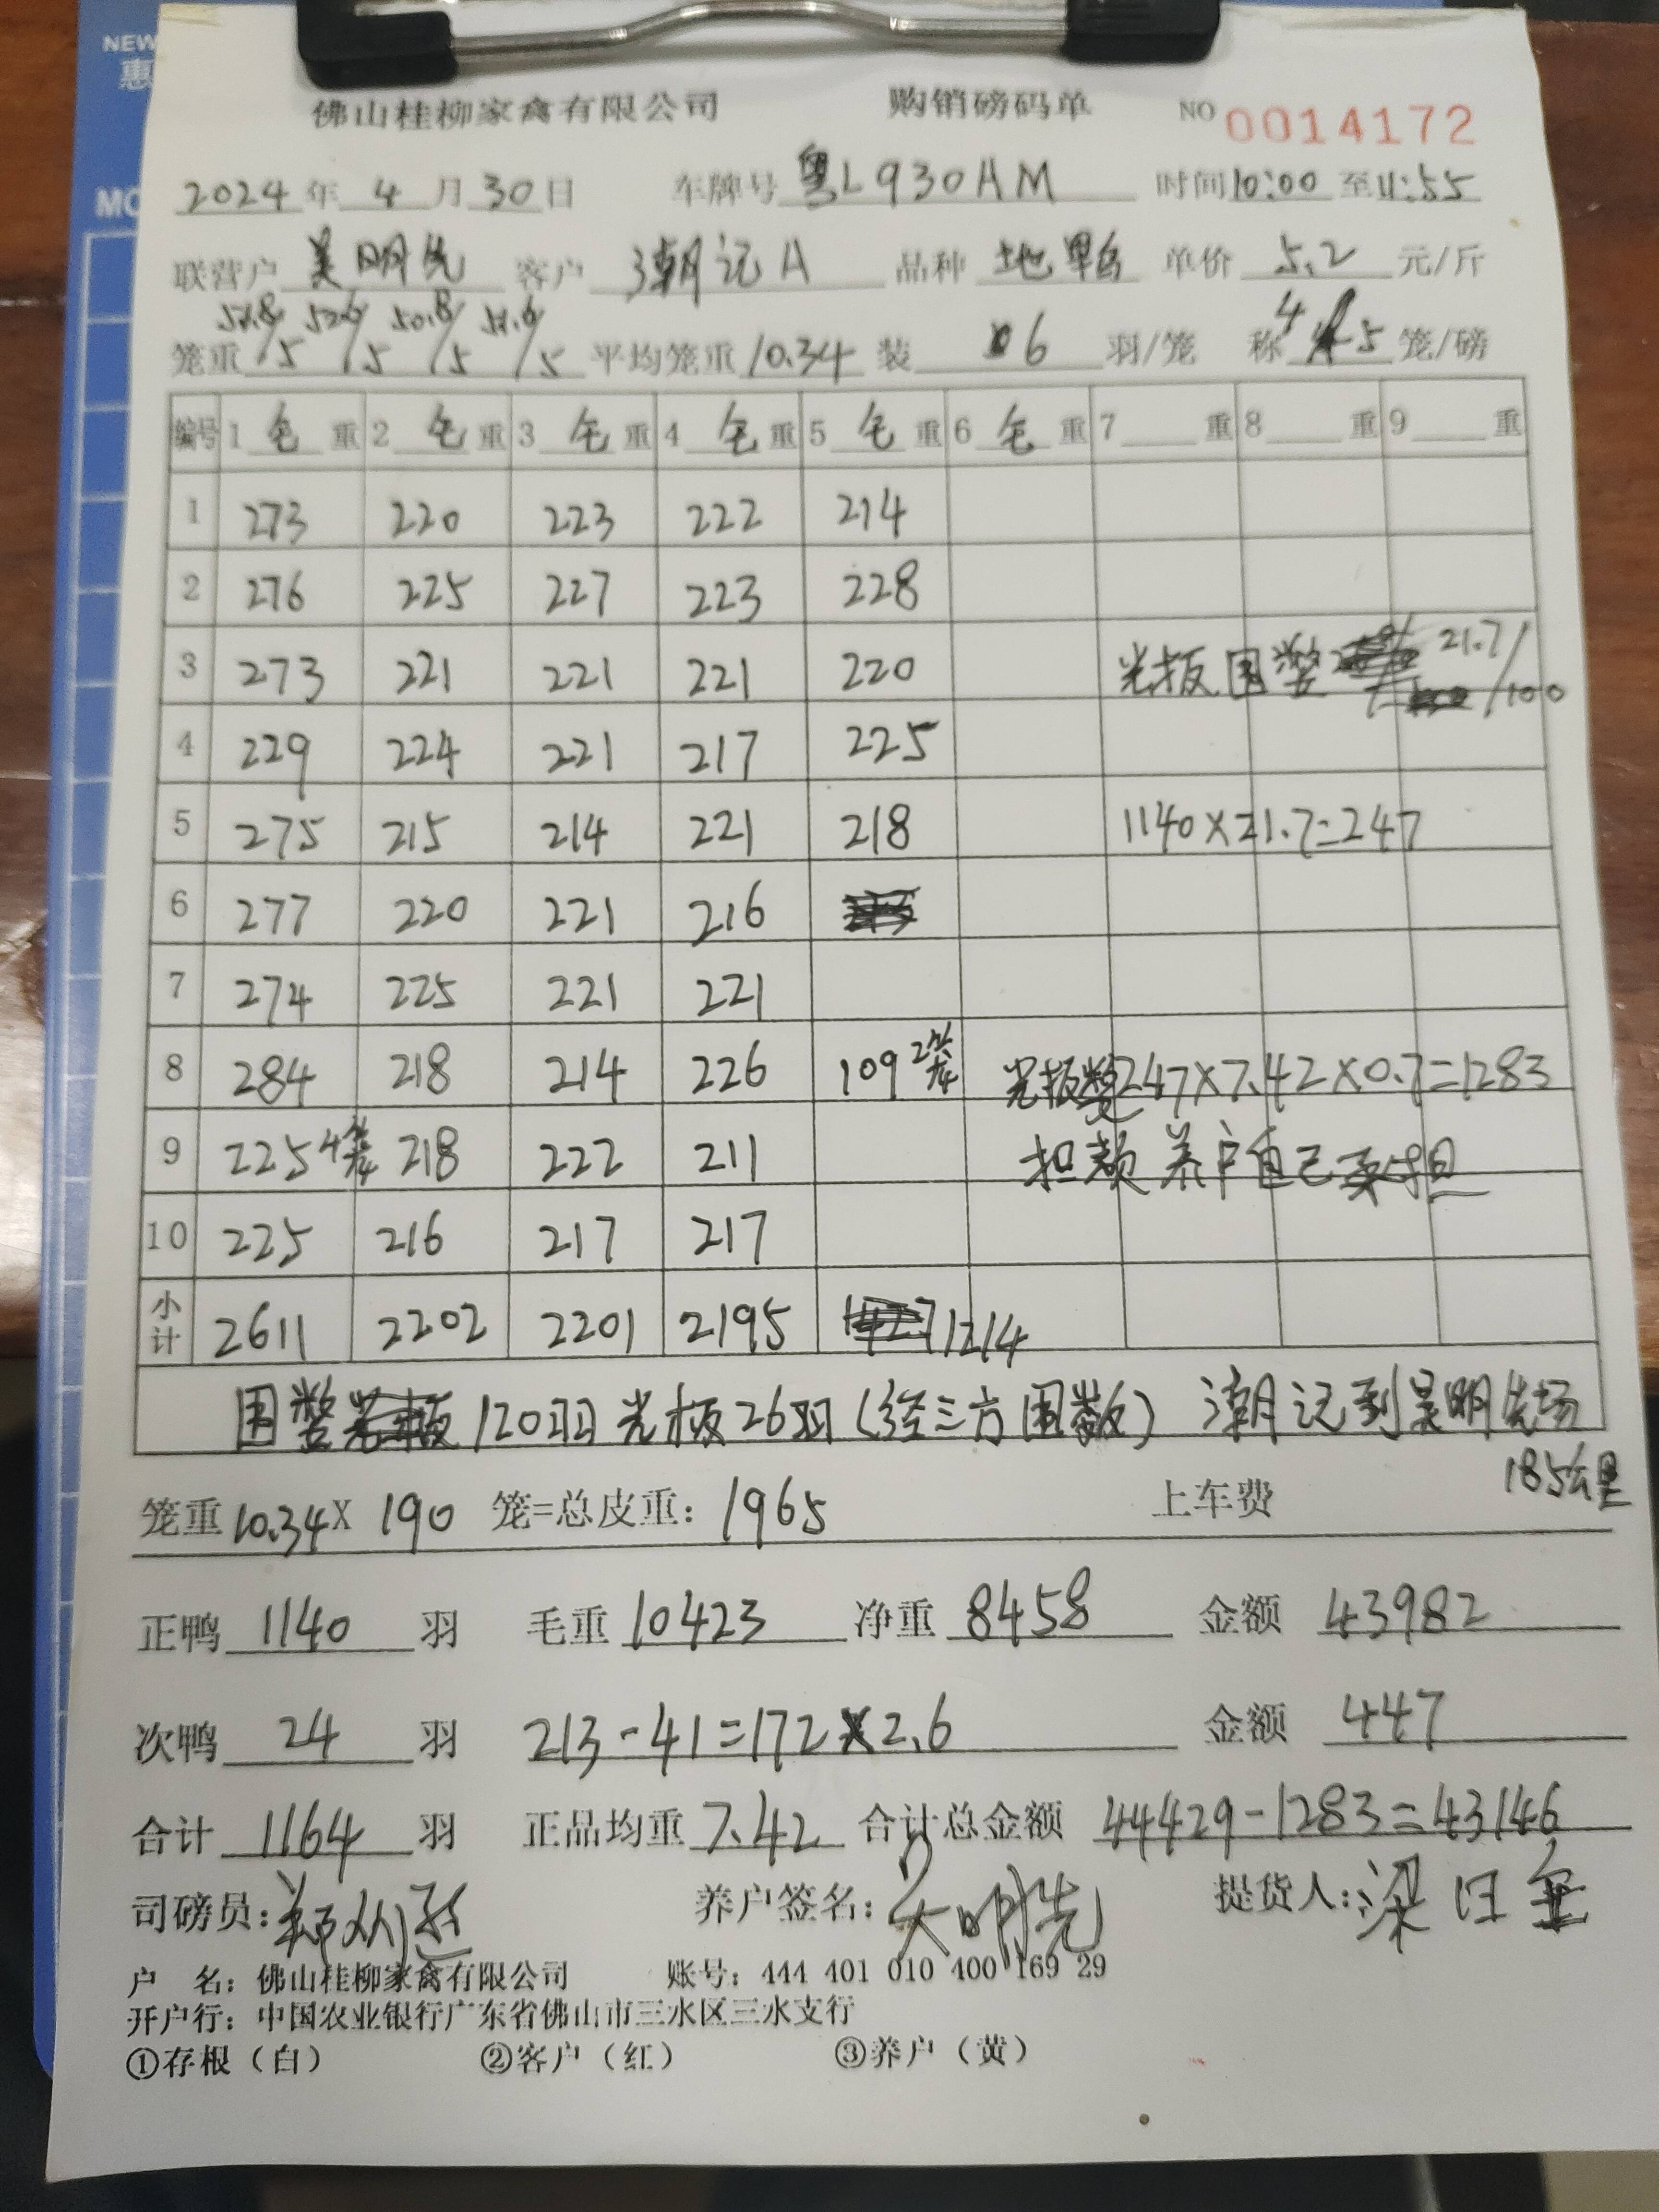 NEW
惠
MO
佛山桂柳家禽有限公司 购销磅码单 NO 0014172
2024年 4 月 30 日 车牌号 粤L930AM 时间10:00 至11:55
联营户 吴明先 客户 潮记A 品种 地鸭 单价 5.2 元/斤
笼重 /5 52.6/5 50.8/5 51.6/5 平均笼重 10.34 装 6 羽/笼 称 4 5 笼/磅
编号 1 毛 重 2 毛 重 3 毛 重 4 毛 重 5 毛 重 6 毛 重 7 重 8 重 9 重
1 273 220 223 222 214
2 276 225 227 223 228
3 273 221 221 221 220 光板围数 21.7/100
4 229 224 221 217 225
5 275 215 214 221 218 1140×21.7=247
6 277 220 221 216
7 274 225 221 221
8 284 218 214 226 109 2笼 光板 247×7.42×0.7=1283
9 225 4笼 218 222 211 担额 养户自己承担
10 225 216 217 217
小计 2611 2202 2201 2195 1214
围数 120羽 光板26羽(经三方围数) 潮记到吴明先场
185公里
笼重 10.34 X 190 笼=总皮重: 1965 上车费
正鸭 1140 羽 毛重 10423 净重 8458 金额 43982
次鸭 24 羽 213-41=172×2.6 金额 447
合计 1164 羽 正品均重 7.42 合计总金额 44429-1283=43146
司磅员: 养户签名: 吴明先 提货人: 梁
户 名: 佛山桂柳家禽有限公司 账号: 444 401 010 400 169 29
开户行: 中国农业银行广东省佛山市三水区三水支行
①存根(白) ②客户(红) ③养户(黄)